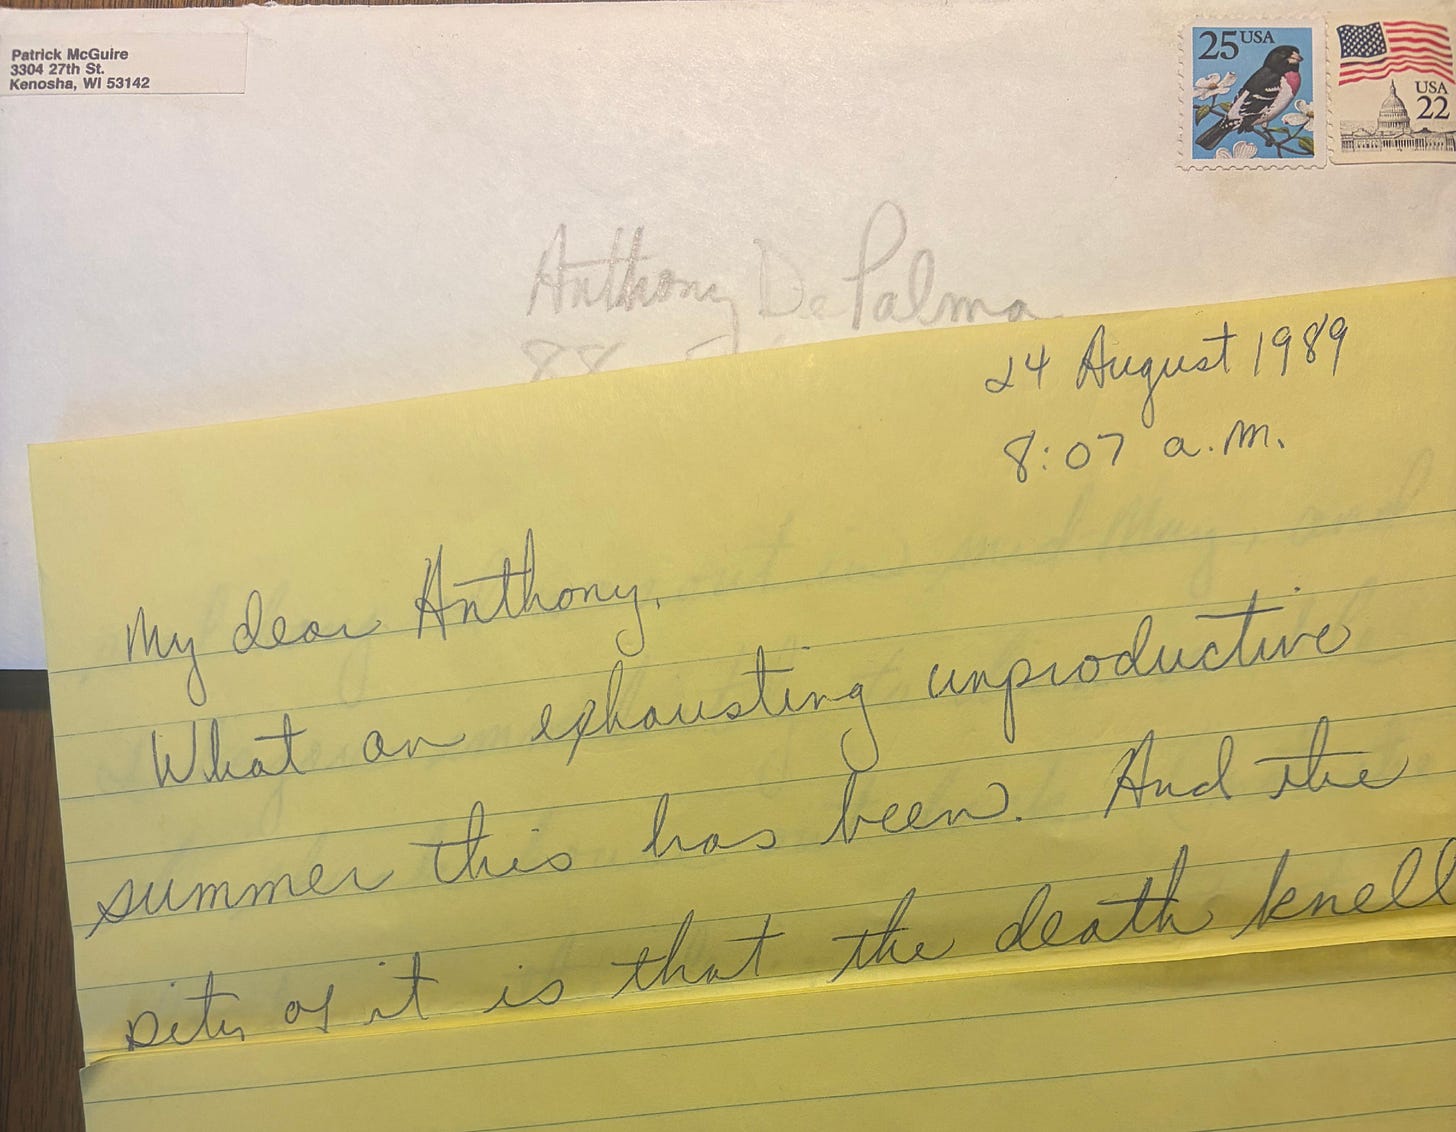 Patrick McGuire
3304 27th St.
Kenosha, WI 53142
25 USA
USA
22
Anthony DePalma
88
24 August 1989
8:07 a.m.
My dear Anthony,
What an exhausting unproductive
summer this has been. And the
pity of it is that the death knell